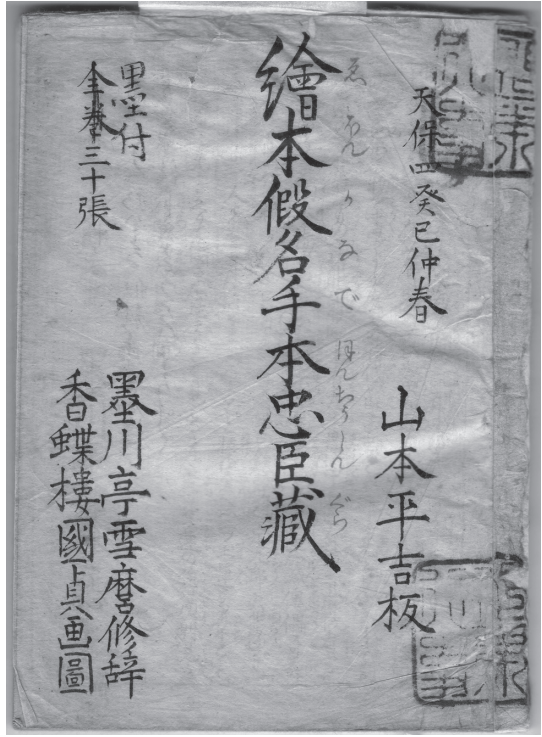 天保四癸巳仲春
山本平吉板
繪本假名手本忠臣藏
ゑほんかなでほんちうしんぐら
墨付
全巻三十張
墨川亭雪麿修辞
香蝶樓國貞画圖